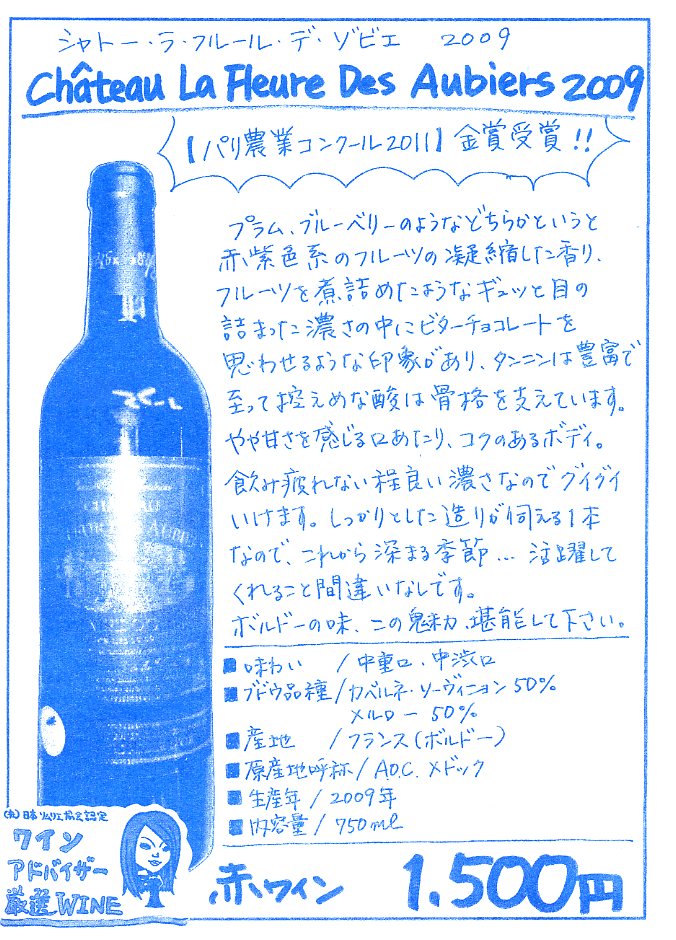 シャトー・ラ・フルール・デ・ゾビエ 2009
Château La Fleure Des Aubiers 2009
【パリ農業コンクール2011】金賞受賞!!
プラム、ブルーベリーのようなどちらかというと
赤紫色系のフルーツの凝縮した香り、
フルーツを煮詰めたようなギュッと目の
詰まった濃さの中にビターチョコレートを
思わせるような印象があり、タンニンは豊富で
至って控えめな酸は骨格を支えています。
やや甘さを感じる口あたり、コクのあるボディ。
飲み疲れない程良い濃さなのでグイグイ
いけます。しっかりとした造りが伺える1本
なので、これから深まる季節… 活躍して
くれること間違いなしです。
ボルドーの味、この魅力、堪能して下さい。
■味わい / 中重口、中渋口
■ブドウ品種 / カベルネ・ソーヴィニヨン 50%
メルロー 50%
■産地 / フランス(ボルドー)
■原産地呼称 / AOC. メドック
■生産年 / 2009年
■内容量 / 750ml
(社)日本ソムリエ協会認定
ワイン
アドバイザー
厳選 WINE
赤ワイン 1,500円